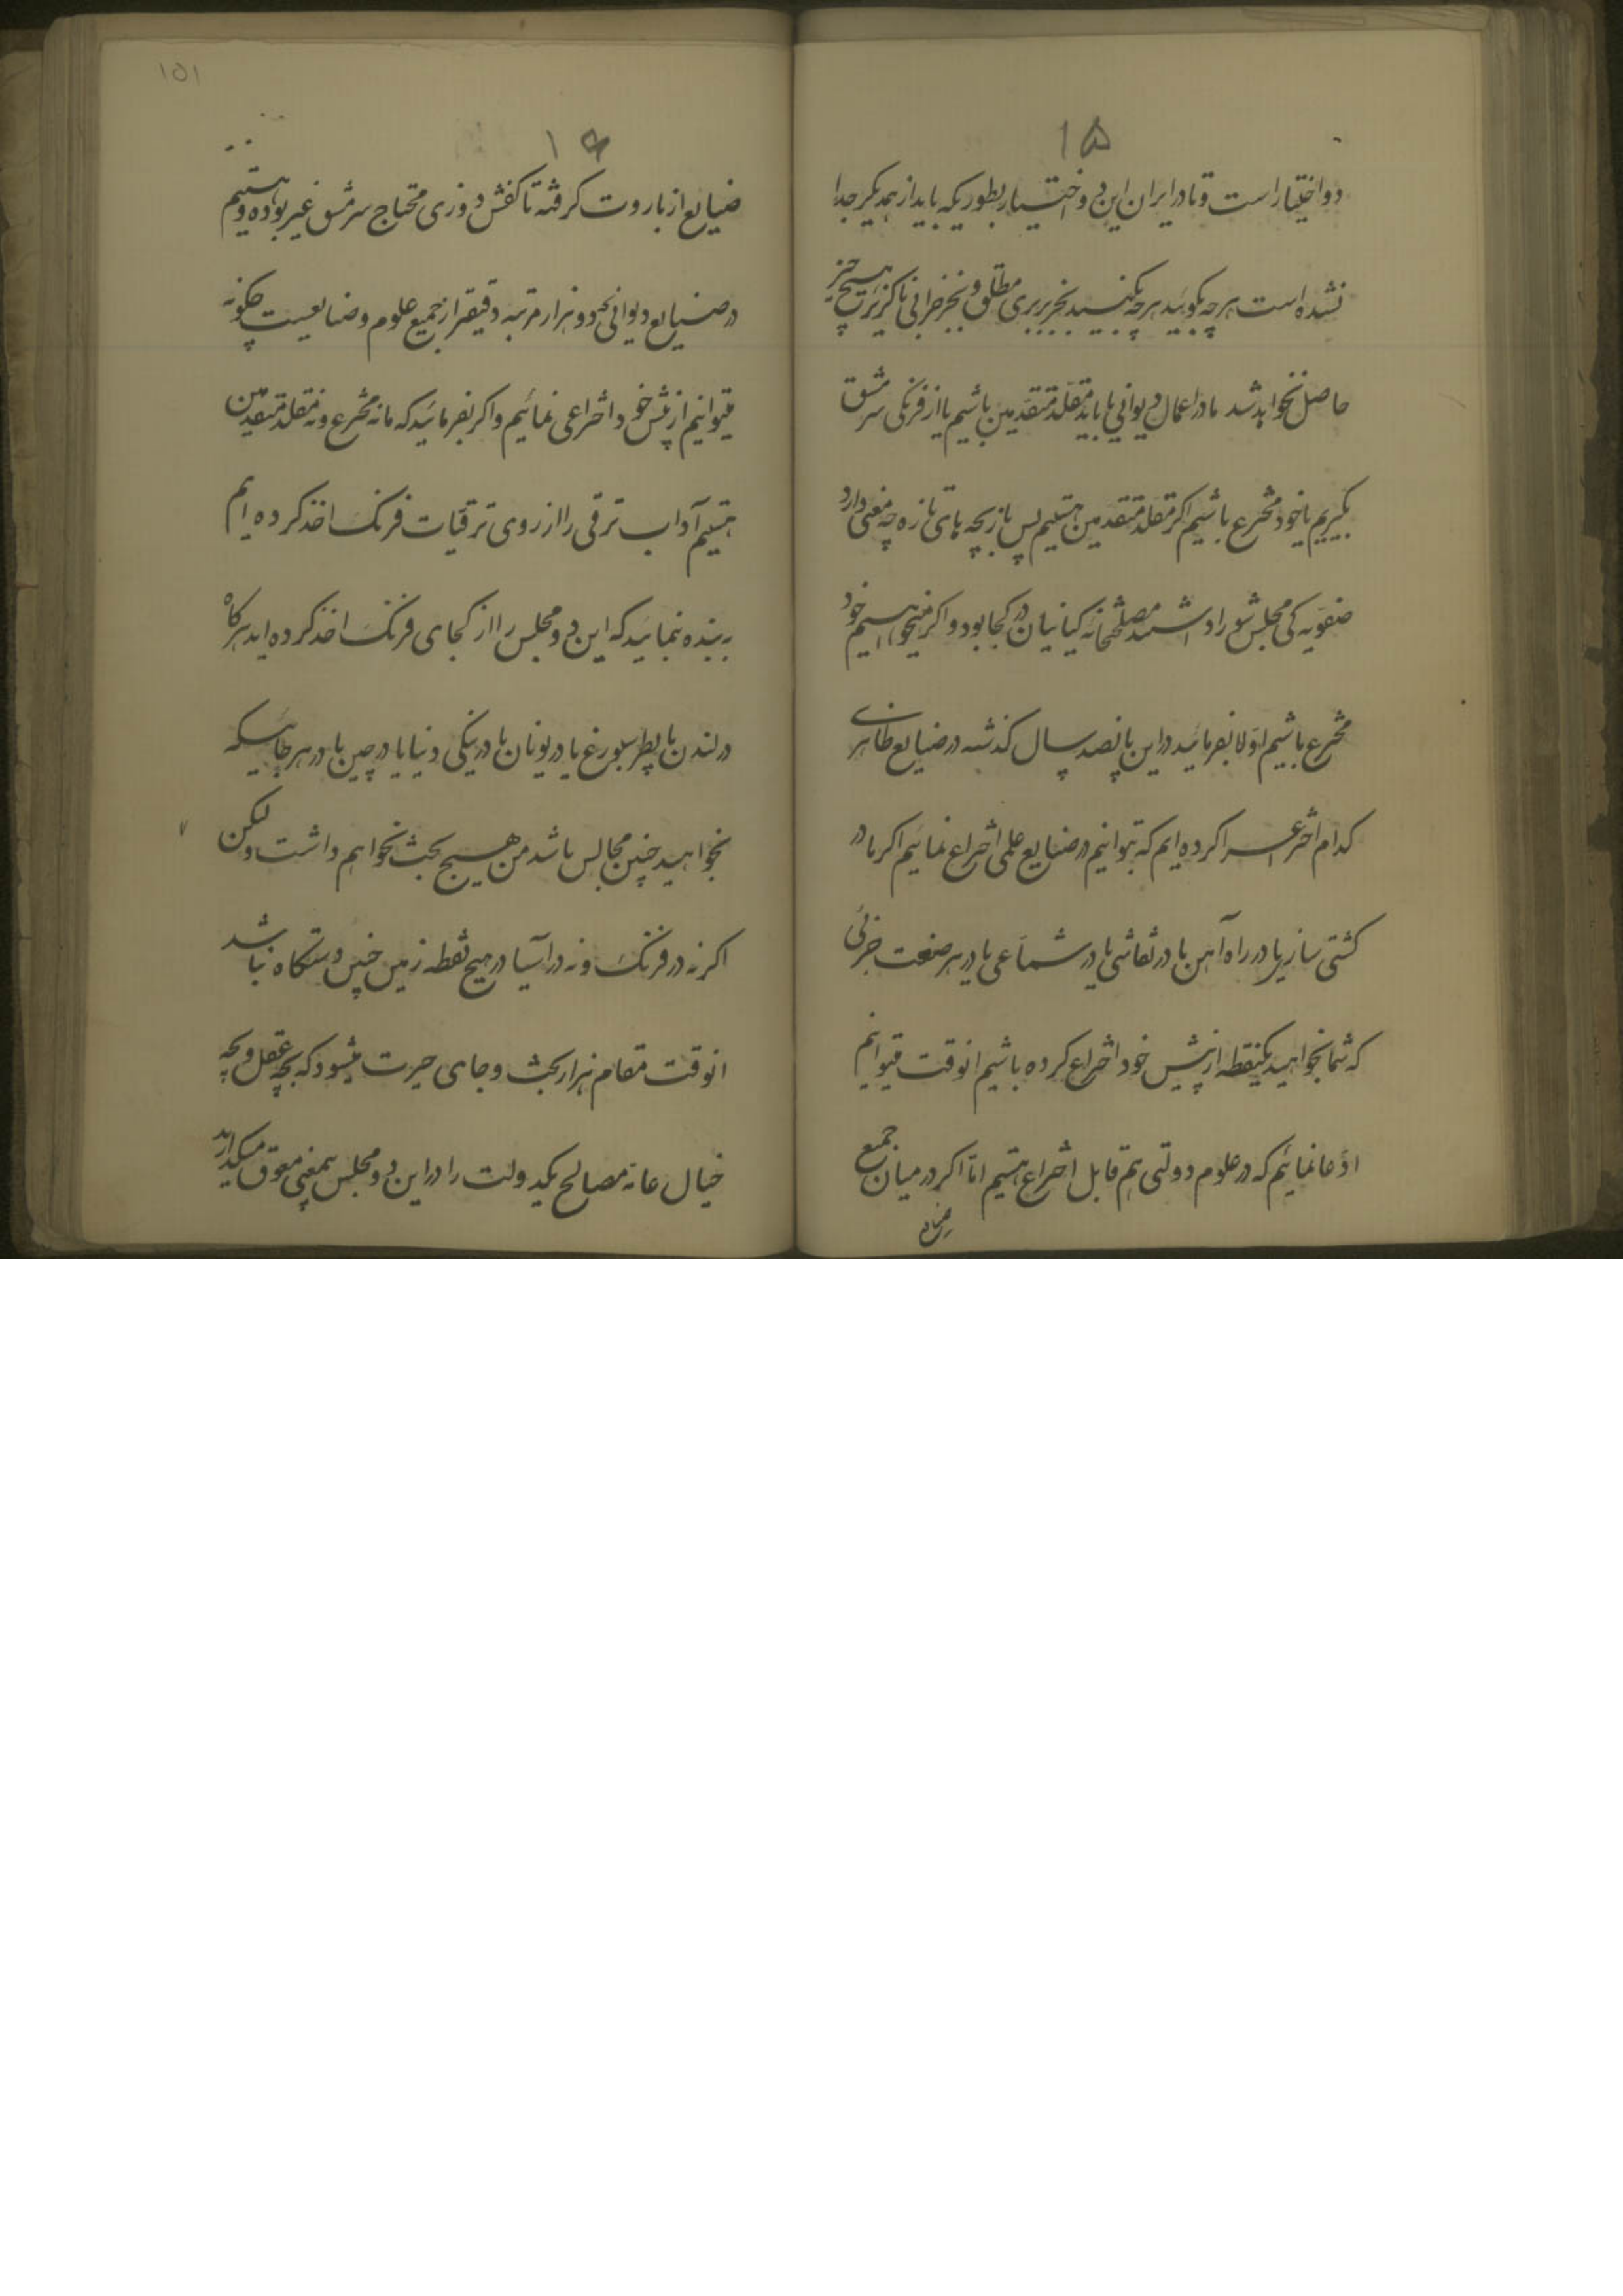 ۱۵
دو اختیار است و تا در ایران این دو اختیار بطوریکه باید از همدیکر جدا
نشده است هرچه بکویید هرچه بکنید بجز بربری مطلق و بجز خرابی ناکزیر هیچ چیز
حاصل نخواهد شد ما در اعمال دیوانی یا باید مقلد متقدمین باشیم یا از فرنکی سرمشق
بکیریم یا خود مخترع باشیم اکر مقلد متقدمین هستیم پس بازیچه های تازه چه معنی دارد
صفویه کی مجلس شورا داشتند مصلحتخانه کیانیان در کجا بود و اکر میخواهیم خود
مخترع باشیم اولا بفرمائید در این پانصد سال کذشته در صنایع ظاهری
کدام اختراع را کرده ایم که بتوانیم در صنایع علمی اختراع نمائیم اکر ما در
کشتی سازی یا در راه آهن یا در نقاشی یا در شماعی یا در هر صنعت جزئی
که شما بخواهید یکنقطه از پیش خود اختراع کرده باشیم انوقت میتوانیم
ادعا نمائیم که در علوم دولتی هم قابل اختراع هستیم اما اکر در میان جمیع
صنایع
۱۵۱
۱۶
صنایع از باروت کرفته تا کفش دوزی محتاج سرمشق غیر بوده و هستیم
در صنایع دیوانی که دو هزار مرتبه دقیقتر از جمیع علوم و صنایعست چکونه
میتوانیم از پیش خود اختراعی نمائیم و اکر بفرمائید که ما نه مخترع و نه مقلد متقدمین
هستیم آداب ترقی را از روی ترقیات فرنک اخذ کرده ایم
به بنده بنمایید که این دو مجلس را از کجای فرنک اخذ کرده اید هرکاه
در لندن یا پطربورغ یا در یونان یا در ینکی دنیا یا در چین یا در هر جائیکه
بخواهید چنین مجالس باشد من هیچ بحث نخواهم داشت ولیکن
اکر نه در فرنک و نه در آسیا در هیچ نقطه زمین چنین دستکاه نباشد
انوقت مقام هزار بحث و جای حیرت میشود که بچه عقل و بچه
خیال عامه مصالح یکدولت را در این دو مجلس بیمعنی معوق میکذارید